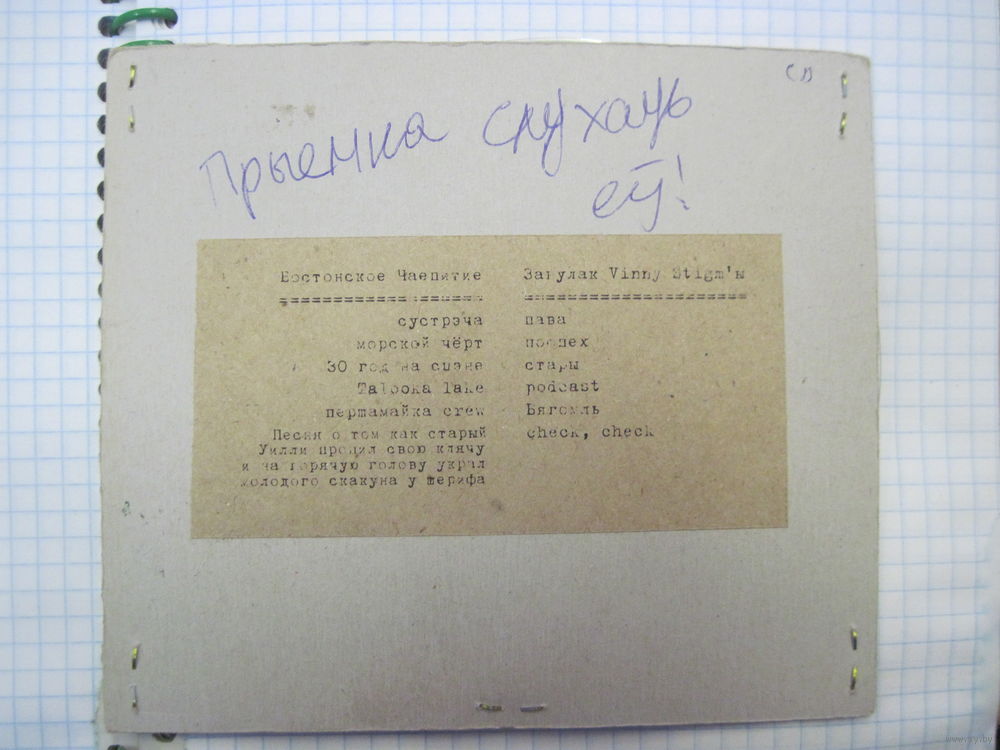 Прыемна слухаць
еў!
Бостонское Чаепитие
===================
сустрэча
морской чёрт
30 год на сцэне
Talooka lake
першамайка crew
Песня о том как старый
Уилли пропил свою клячу
и на горячую голову украл
молодого скакуна у шерифа
Загулак Vinny Stigm'ы
===================
пава
поспех
стары
podcast
Бягомль
check, check